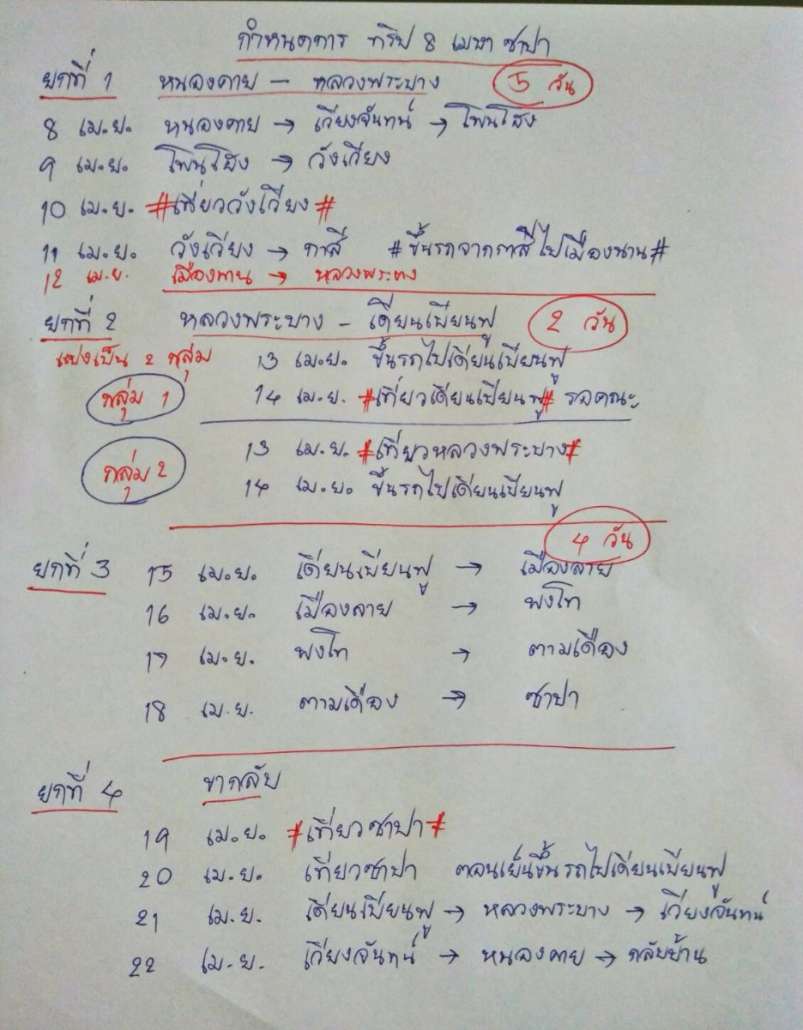 กำหนดการ ทริป 8 เมษา ซาปา
ยกที่ 1 หนองคาย - หลวงพระบาง 5 วัน
8 เม.ย. หนองคาย → เวียงจันทน์ → โพนโฮง
9 เม.ย. โพนโฮง → วังเวียง
10 เม.ย. #เที่ยววังเวียง#
11 เม.ย. วังเวียง → กาสี #ขึ้นรถจากกาสีไปเมืองนาน#
12 เม.ย. เมืองนาน → หลวงพระบาง
ยกที่ 2 หลวงพระบาง - เดียนเบียนฟู 2 วัน
แบ่งเป็น 2 กลุ่ม 13 เม.ย. ขึ้นรถไปเดียนเบียนฟู
กลุ่ม 1 14 เม.ย. #เที่ยวเดียนเบียนฟู# รอคณะ
13 เม.ย. #เที่ยวหลวงพระบาง#
กลุ่ม 2 14 เม.ย. ขึ้นรถไปเดียนเบียนฟู
4 วัน
ยกที่ 3 15 เม.ย. เดียนเบียนฟู → เมืองลาย
16 เม.ย. เมืองลาย → พงโท
17 เม.ย. พงโท → ตามเดือง
18 เม.ย. ตามเดือง → ซาปา
ยกที่ 4 ขากลับ
19 เม.ย. #เที่ยวซาปา#
20 เม.ย. เที่ยวซาปา ตอนเย็นขึ้นรถไปเดียนเบียนฟู
21 เม.ย. เดียนเบียนฟู → หลวงพระบาง → เวียงจันทน์
22 เม.ย. เวียงจันทน์ → หนองคาย → กลับบ้าน